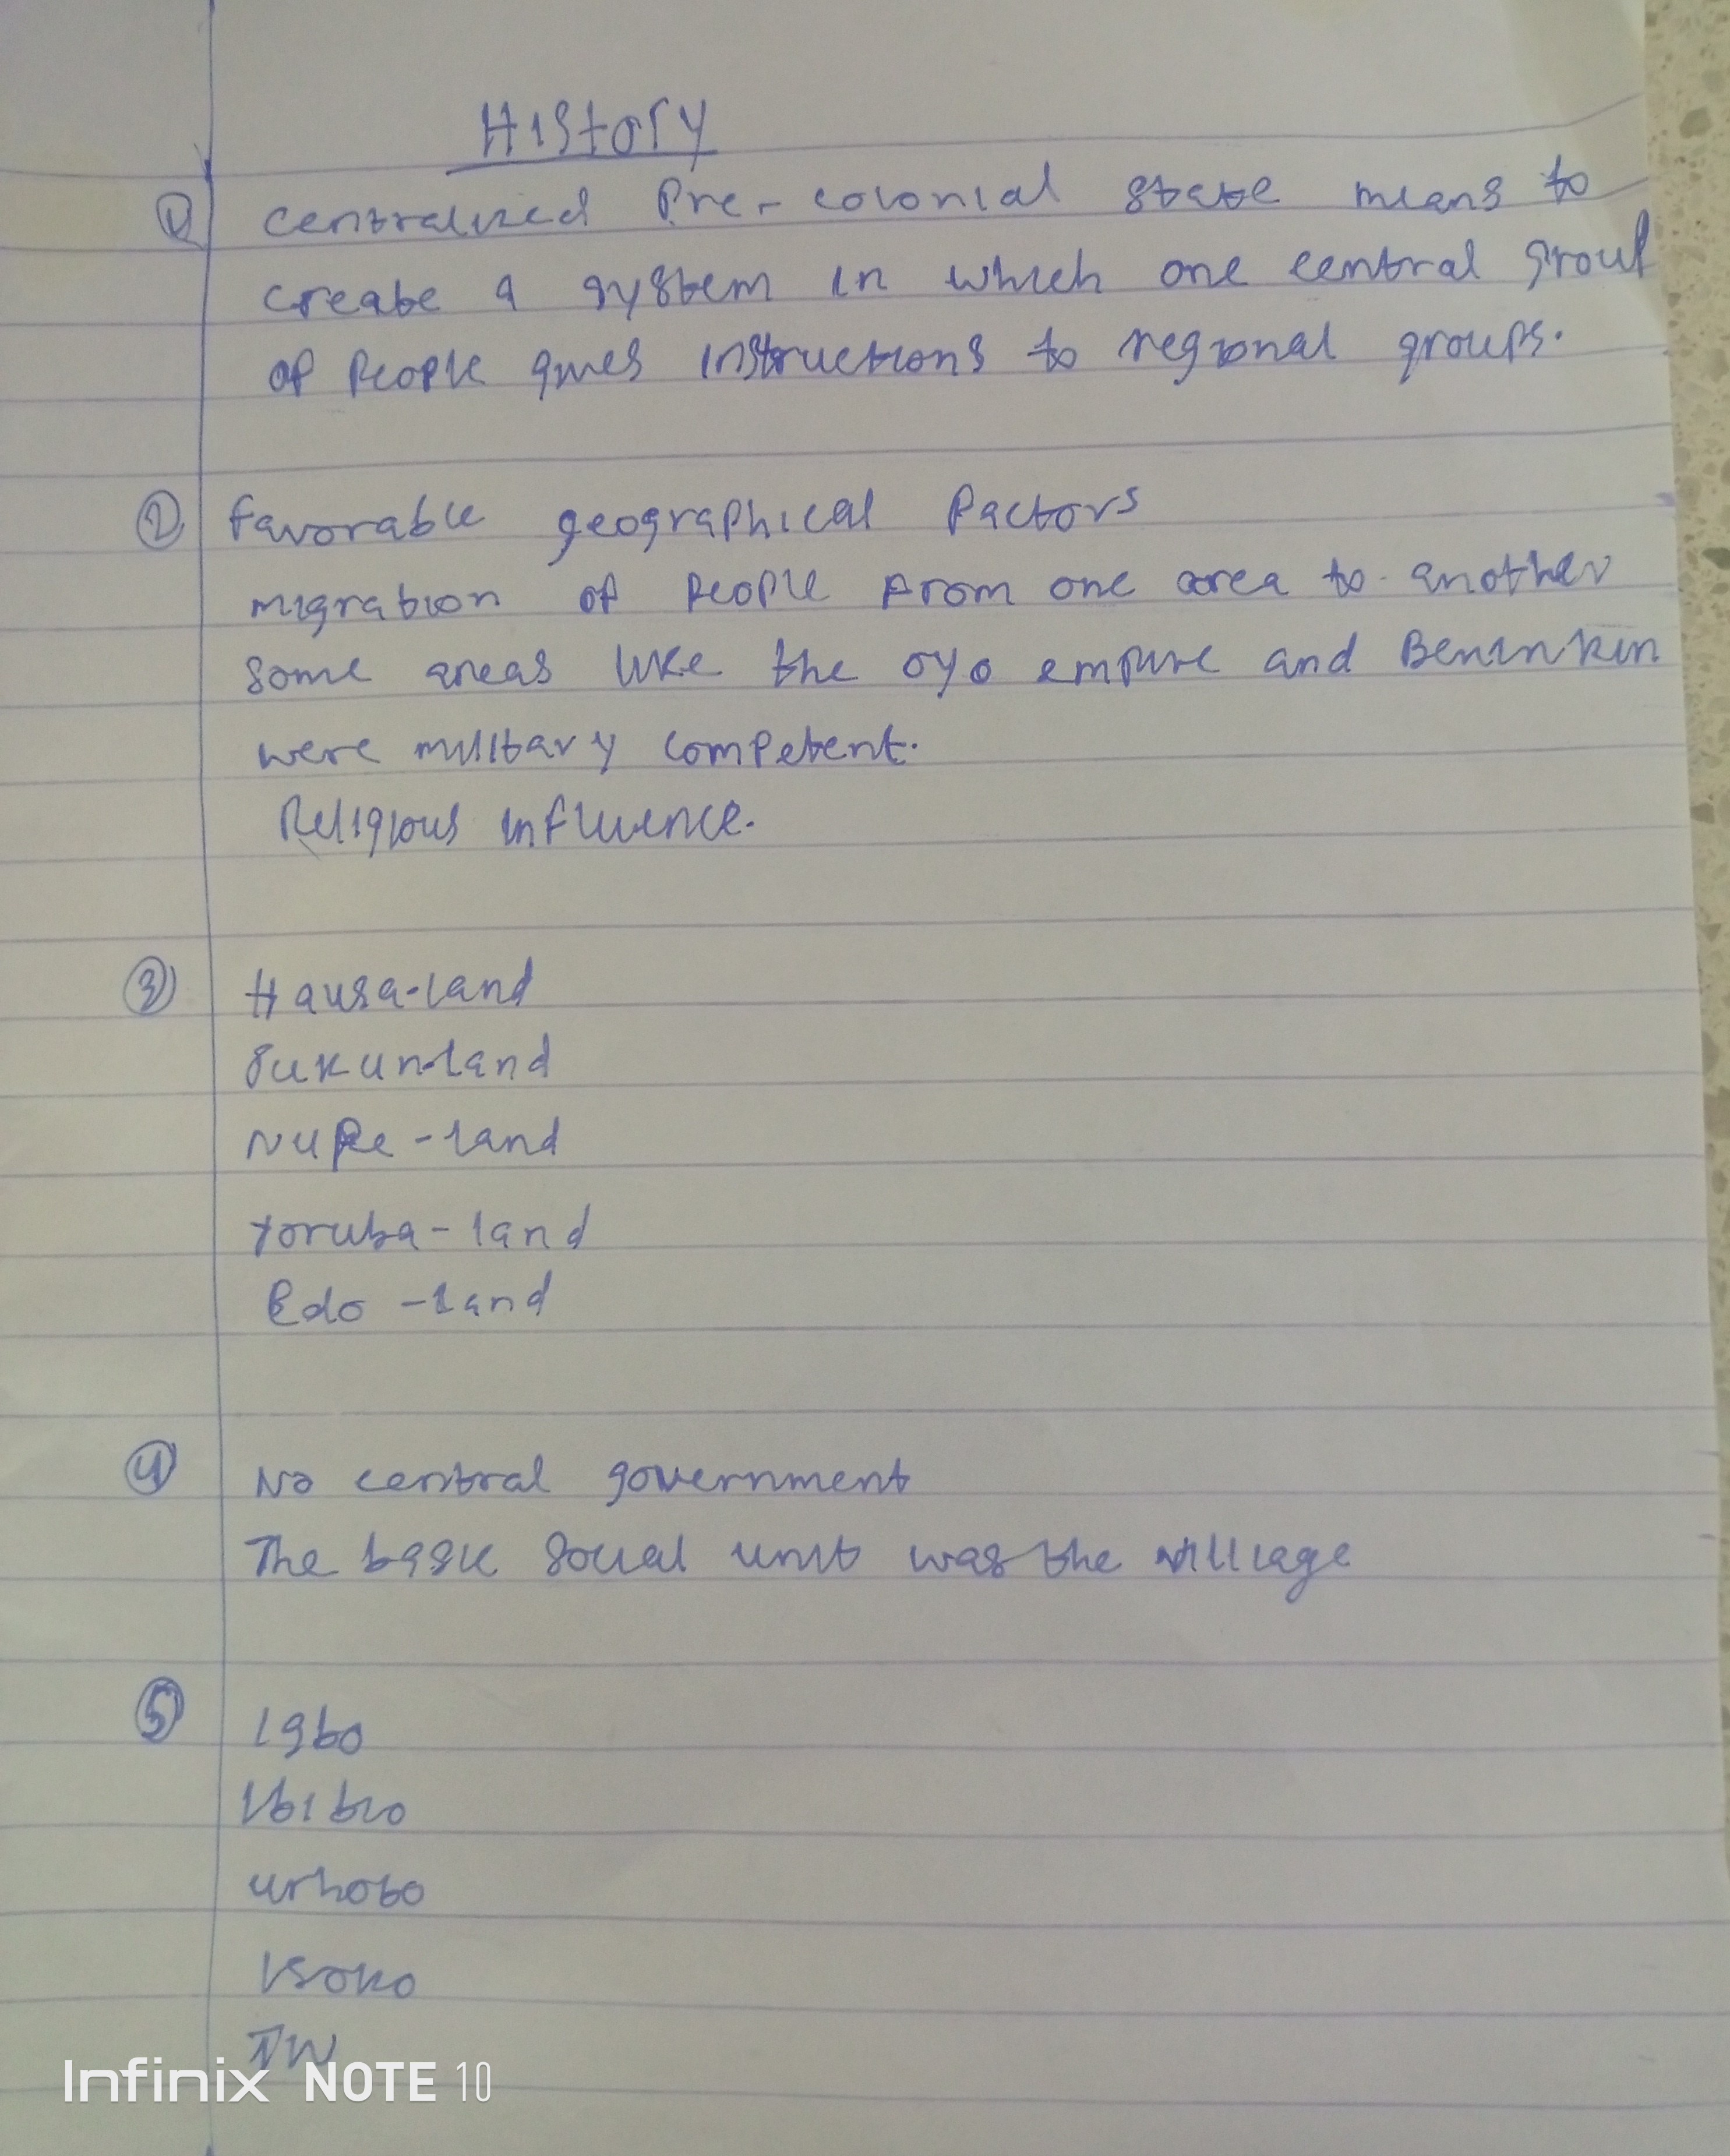 History
① Centralized Pre-colonial state means to
create a system in which one central group
of People gives instructions to regional groups.
② Favorable geographical Factors
migration of People From one area to another
some areas like the oyo empire and Benin kin
were military competent.
Religious influence.
③ Hausa-land
Jukun-land
Nupe-land
Yoruba-land
Edo-land
④ No central government
The basic social unit was the village
⑤ Igbo
Ibibio
urhobo
Isoko
TIV
Infinix NOTE 10